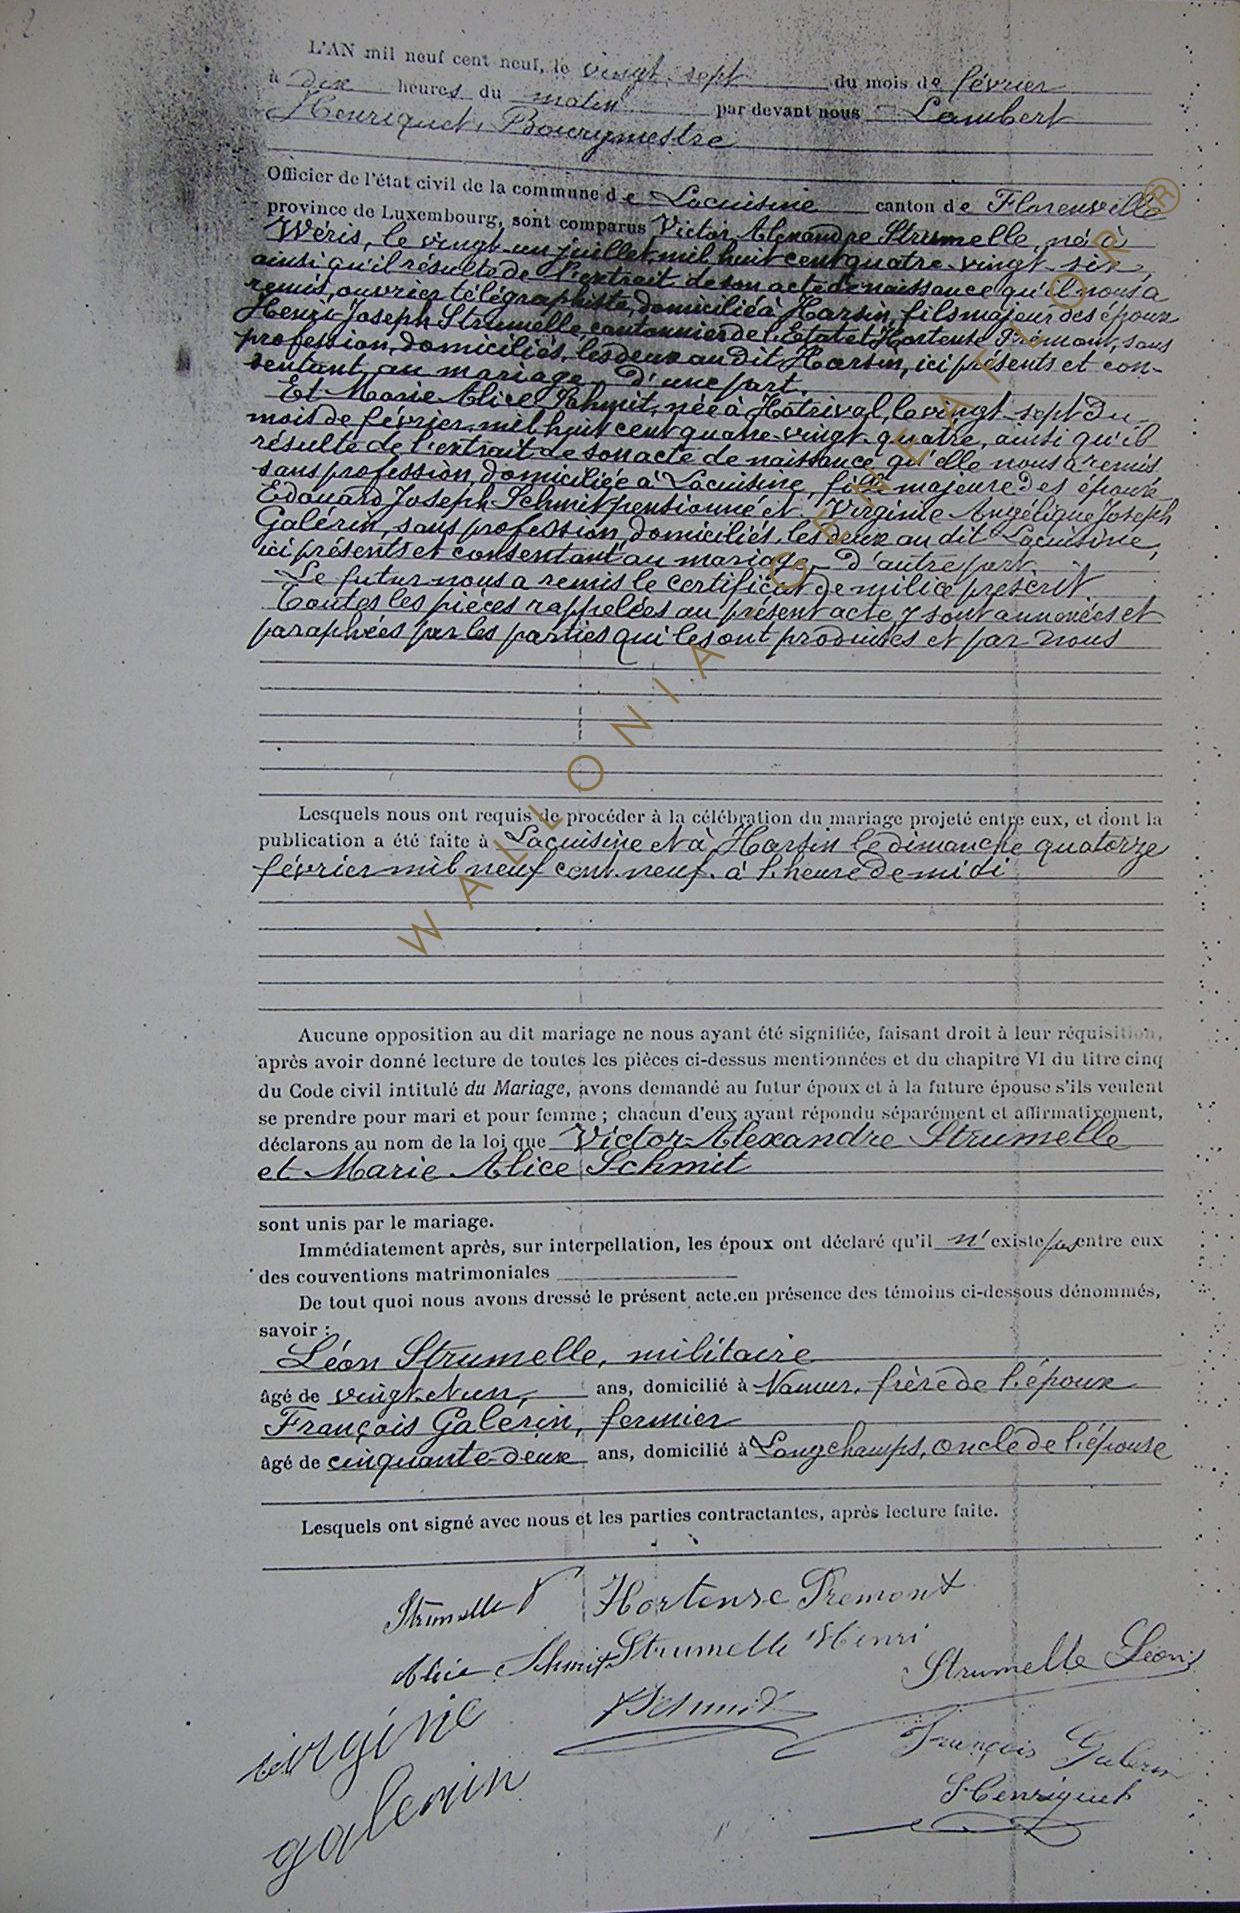 L'AN mil neuf cent neuf, le vingt-sept du mois de février
à dix heures du matin par devant nous Lambert
Henriquet, Bourgmestre
Officier de l'état civil de la commune de Lacuisine canton de Florenville
province de Luxembourg, sont comparus Victor Alexandre Strumelle, né à
Wéris, le vingt-un juillet mil huit cent quatre-vingt-six,
ainsi qu'il résulte de l'extrait de son acte de naissance qu'il nous a
remis, ouvrier télégraphiste, domicilié à Harsin, fils majeur des époux
Henri-Joseph Strumelle, cantonnier de l'Etat et Hortense Premont, sans
profession, domiciliés, les deux au dit Harsin, ici présents et con-
sentant au mariage. D'une part.
Et Marie Alice Schmit, née à Hotrival, le vingt-sept du
mois de février mil huit cent quatre-vingt-quatre, ainsi qu'il
résulte de l'extrait de son acte de naissance qu'elle nous a remis
sans profession, domiciliée à Lacuisine, fille majeure des époux
Edouard Joseph Schmit pensionné et Virginie Angélique Joseph
Galérin, sans profession, domiciliés, les deux au dit Lacuisine,
ici présents et consentant au mariage - D'autre part.
Le futur nous a remis le certificat de milice prescrit.
Toutes les pièces rappelées au présent acte y sont annexées et
paraphées par les parties qui les ont produites et par nous
Lesquels nous ont requis de procéder à la célébration du mariage projeté entre eux, et dont la
publication a été faite à Lacuisine et à Harsin le dimanche quatorze
février mil neuf cent neuf à l'heure de midi
Aucune opposition au dit mariage ne nous ayant été signifiée, faisant droit à leur réquisition,
après avoir donné lecture de toutes les pièces ci-dessus mentionnées et du chapitre VI du titre cinq
du Code civil intitulé du Mariage, avons demandé au futur époux et à la future épouse s'ils veulent
se prendre pour mari et pour femme ; chacun d'eux ayant répondu séparément et affirmativement,
déclarons au nom de la loi que Victor Alexandre Strumelle
et Marie Alice Schmit
sont unis par le mariage.
Immédiatement après, sur interpellation, les époux ont déclaré qu'il n'existe pas entre eux
des conventions matrimoniales
De tout quoi nous avons dressé le présent acte en présence des témoins ci-dessous dénommés,
savoir :
Léon Strumelle, militaire
âgé de vingt et un, ans, domicilié à Namur, frère de l'époux
François Galérin, fermier
âgé de cinquante-deux ans, domicilié à Longchamps, oncle de l'épouse
Lesquels ont signé avec nous et les parties contractantes, après lecture faite.
Strumelle V Hortense Premont
Alice Schmit Strumelle Henri Strumelle Léon
virginie Schmit François Galerin
galerin LHenriquet
WALLONIA GENEALOR ®